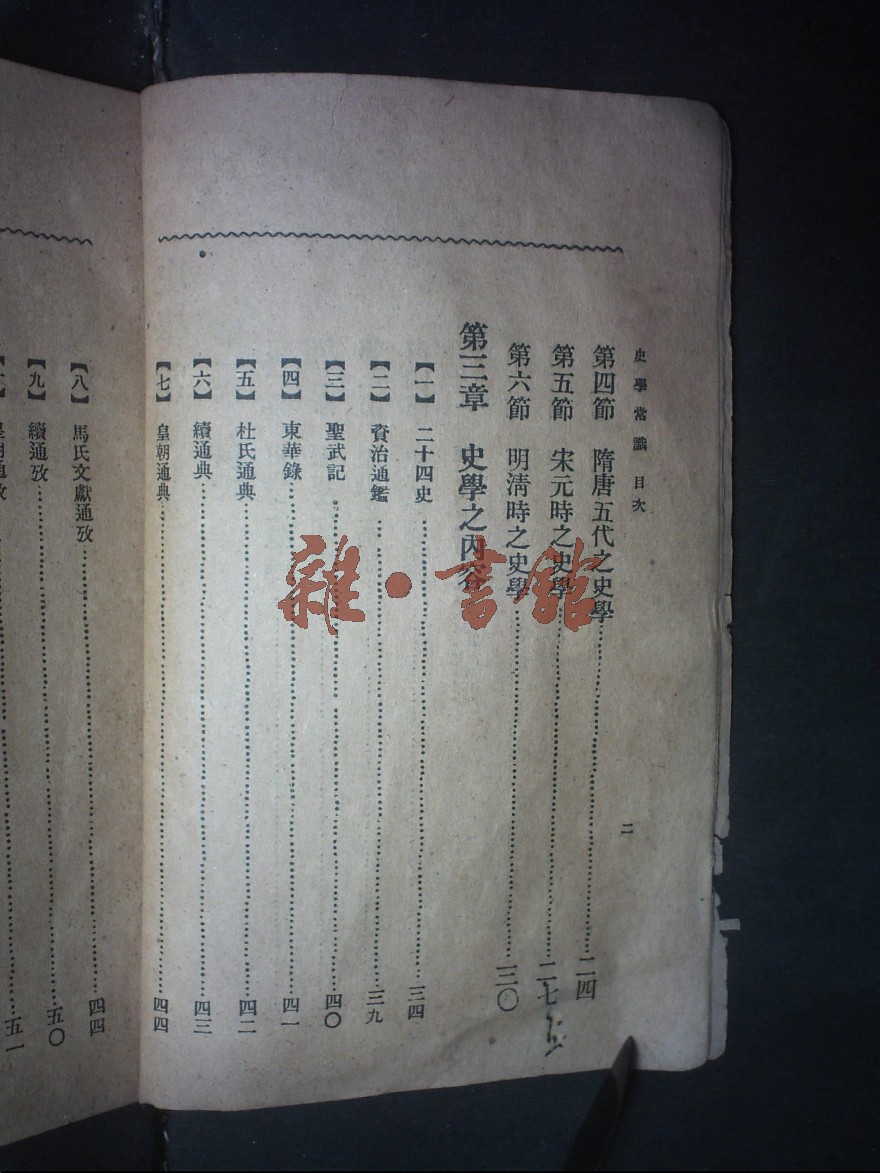 史學常識 目次
二
第四節 隋唐五代之史學……二四
第五節 宋元時之史學……二七
第六節 明清時之史學……三〇
第三章 史學之內容
【一】 二十四史……三四
【二】 資治通鑑……三九
【三】 聖武記……四〇
【四】 東華錄……四一
【五】 杜氏通典……四二
【六】 續通典……四三
【七】 皇朝通典……四四
【八】 馬氏文獻通攷……四四
【九】 續通攷……五〇
皇朝通攷……五一
雜·書館